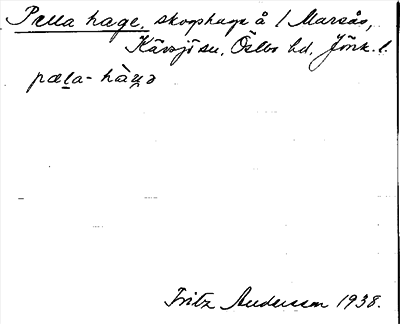 Pella hage, skogshage å / Marsås,
Kävsjö sn, Östbo hd, Jönk. l.
pæla- hàɳə
Fritz Andersson 1938.